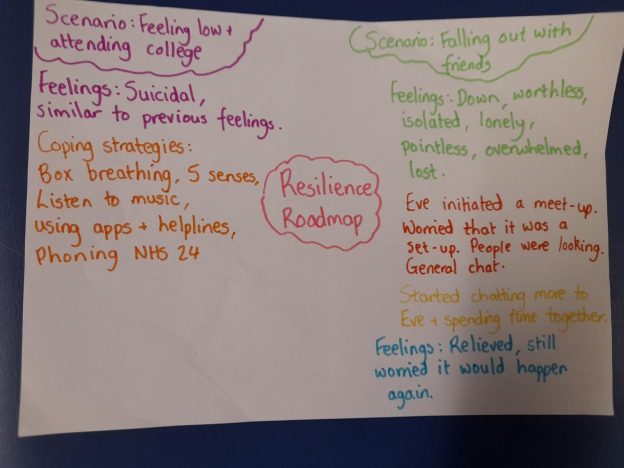 Scenario: Feeling low +
attending college
Feelings: Suicidal,
similar to previous feelings.
Coping strategies:
Box breathing, 5 senses,
Listen to music,
using apps + helplines,
Phoning NHS 24
Resilience
Roadmap
Scenario: Falling out with
friends
Feelings: Down, worthless,
isolated, lonely,
pointless, overwhelmed,
lost.
Eve initiated a meet-up.
Worried that it was a
set-up. People were looking.
General chat.
Started chatting more to
Eve + spending time together.
Feelings: Relieved, still
worried it would happen
again.